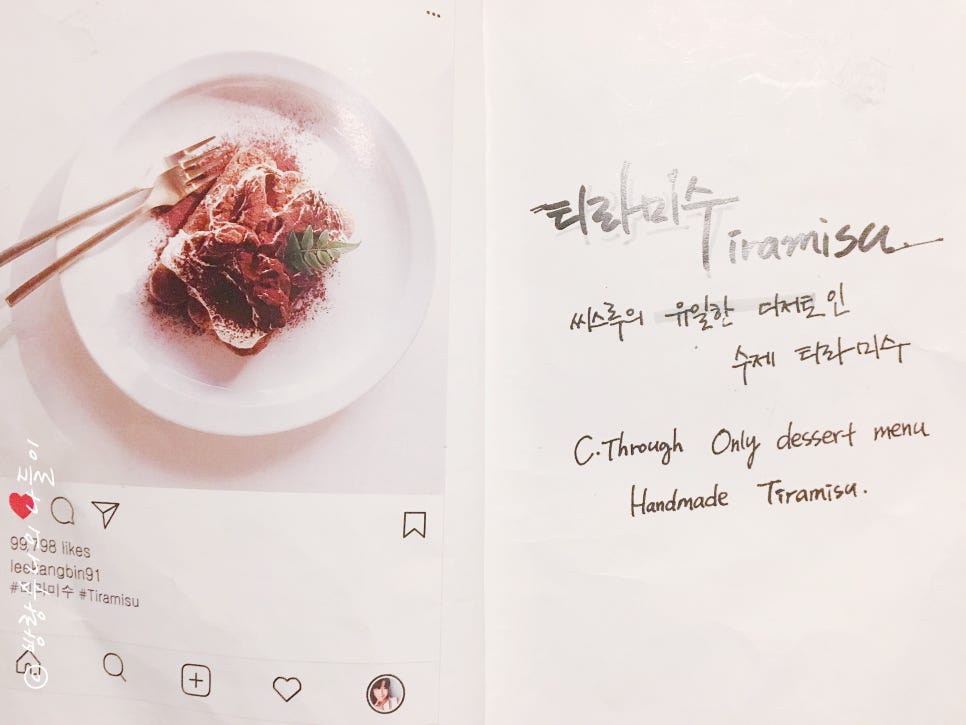 99,798 likes
leekangbin91
#티라미수 #Tiramisu
티라미수
Tiramisu.
씨스루의 유일한 디저트인
수제 티라미수
C.Through Only dessert menu
Handmade Tiramisu.